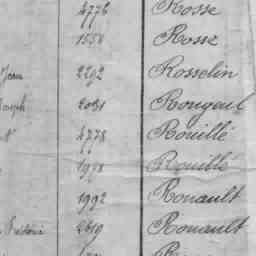 4776 Rosse
1558 Rosse
Jean 2292 Rosselin
Joseph 2081 Rougeul
4778 Rouillé
1978 Rouillé
1992 Rouault
Frédéric 2619 Rouault